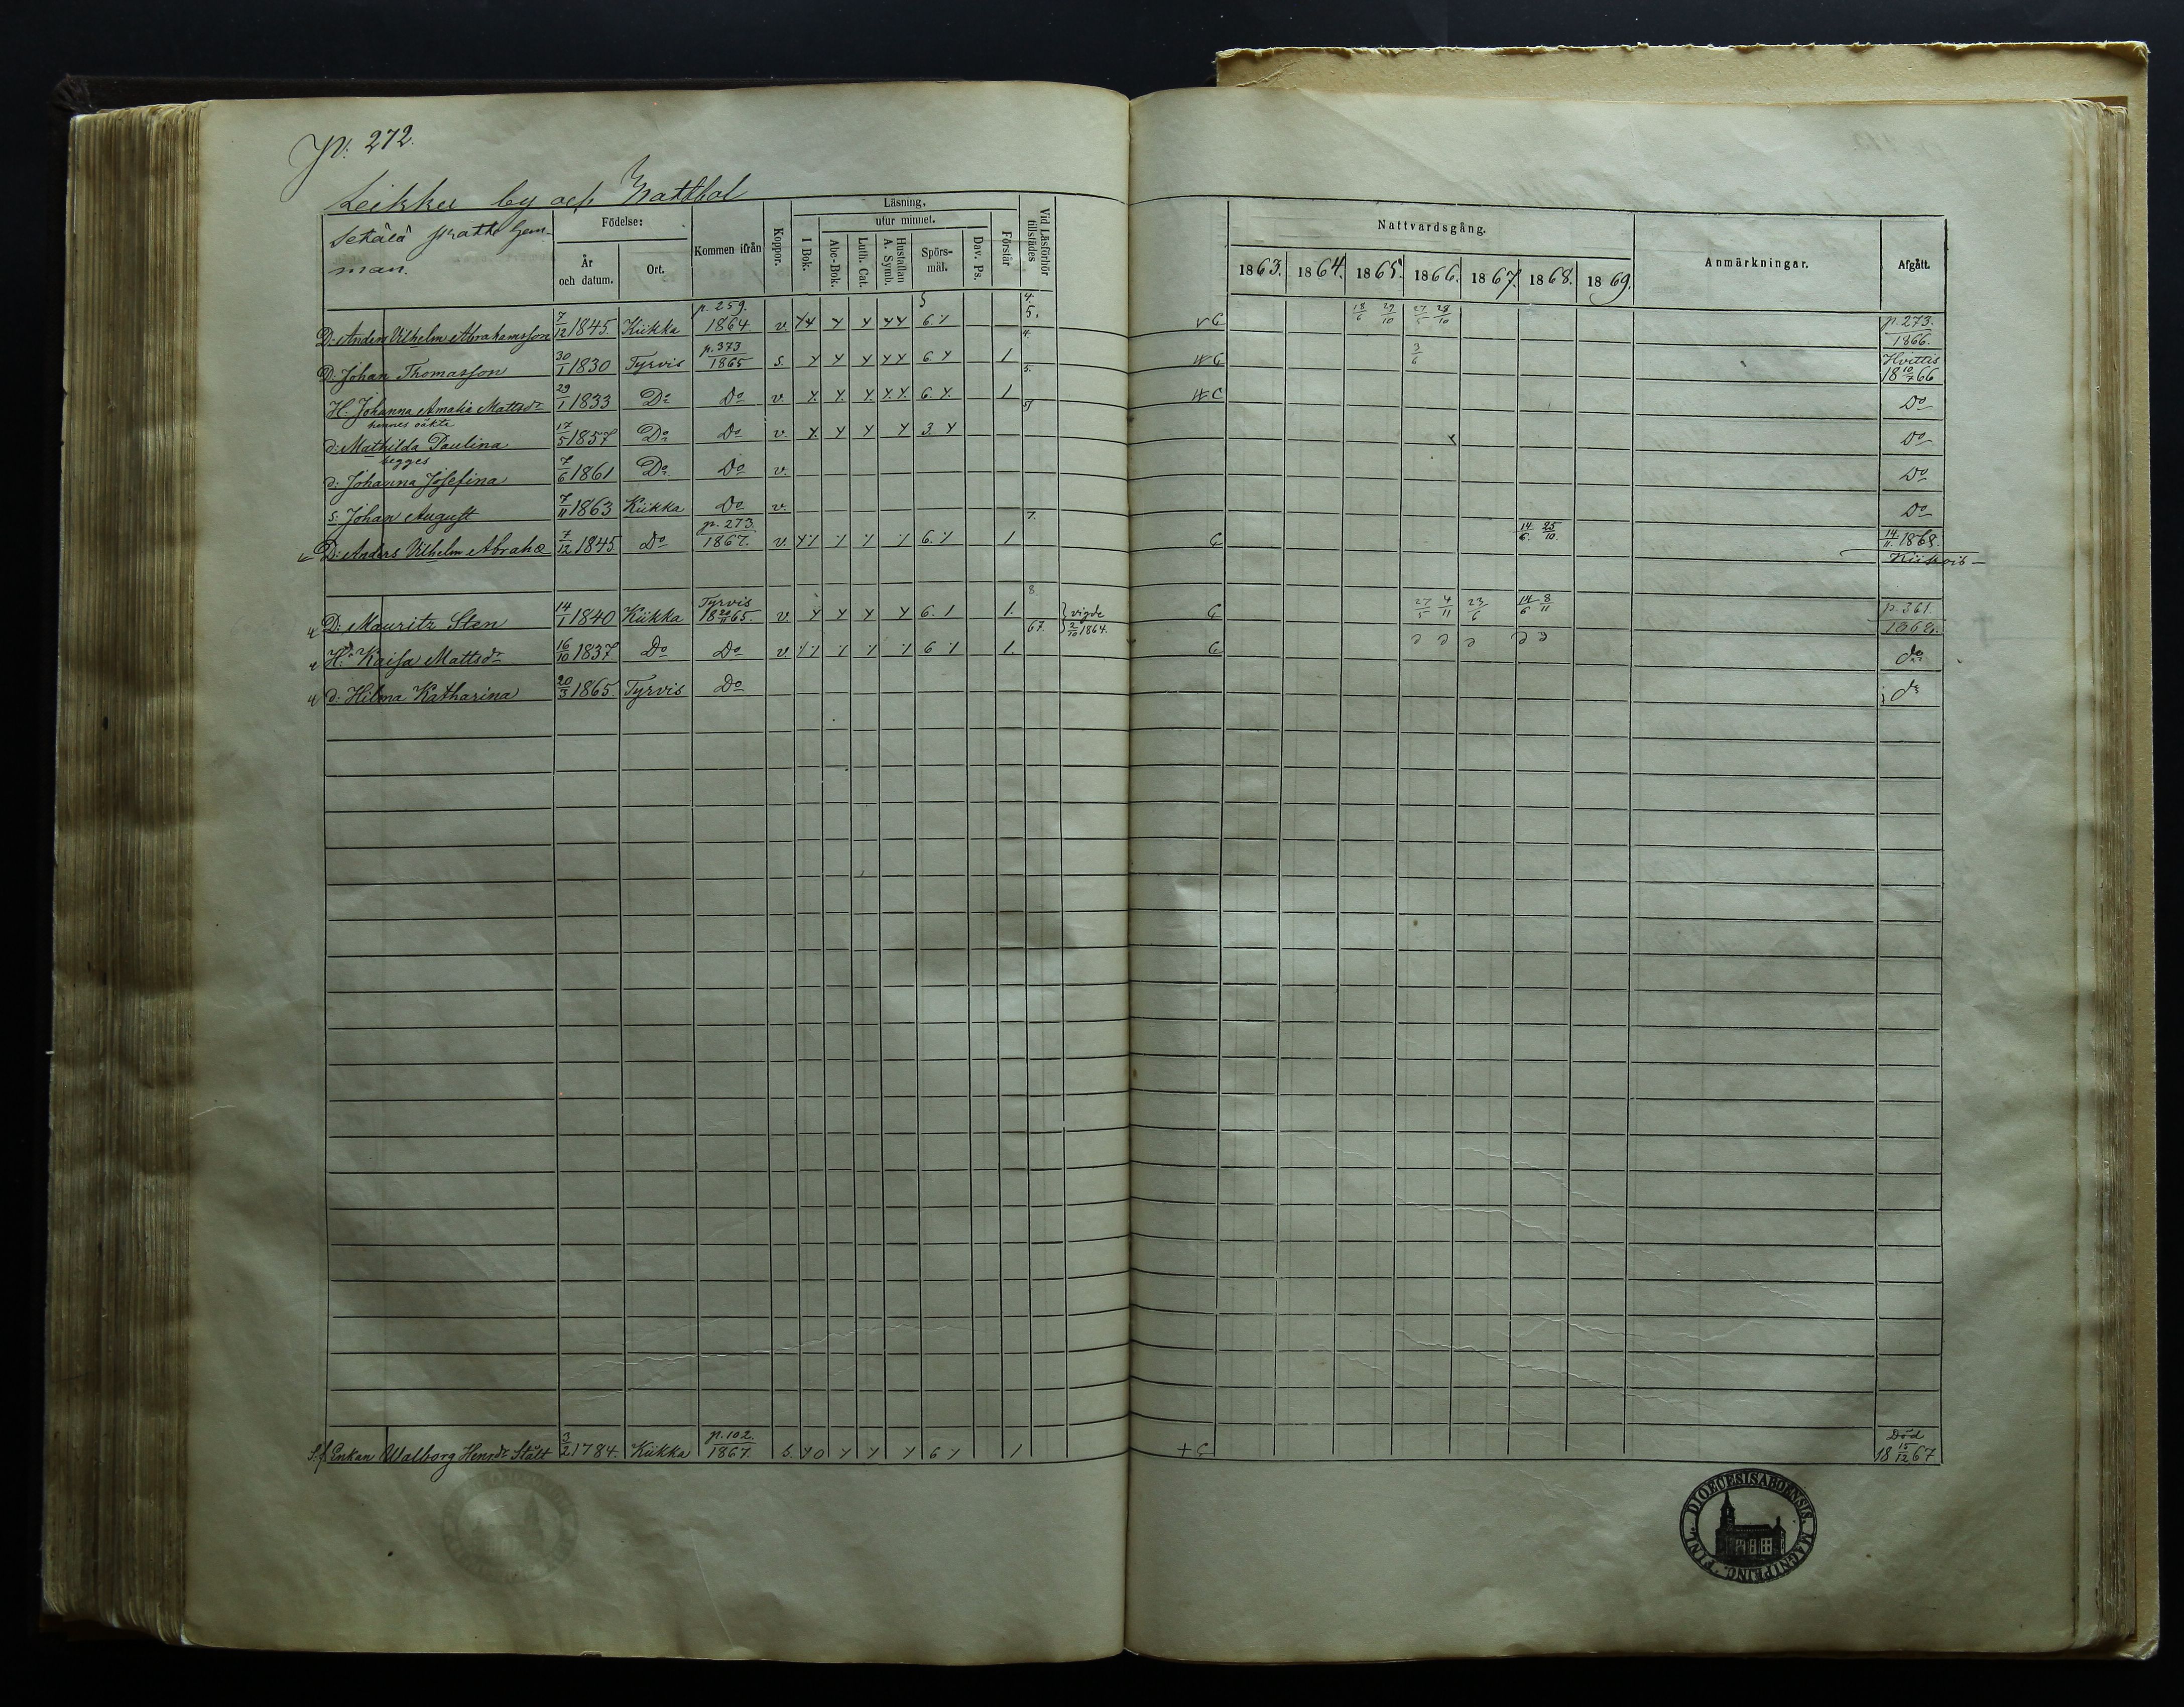 272.
Leikku by och
Setälä skatte hemman.
Födelse:
År och datum.
Ort.
Kommen ifrån
Koppor.
Läsning.
I Bok.
utur minnet.
Abc-Bok.
Luth. Cat.
Hustaflan A. Symb.
Spörsmål.
Dav. Ps.
Förstår
Vid Läsförhör tillstädes
Nattvardsgång.
1863. 1864. 1865. 1866. 1867. 1868. 1869.
Anmärkningar.
Afgått.
D: Anders Vilhelm Abrahamsson 7/12 1845. Kiikka p. 259. 1864 v. 6. 5. 18/6 29/10 27/5 28/10 p. 273. 1866.
D. Johan Thomasson 30/1 1830 Tyrvis p. 373 1865 s. 6 1 3/6 Hvittis 18 10/7 66
H. Johanna Amalia Mattsdr 29/1 1833 Do Do v. 6. 1 Do
hennes oäkta
d: Mathilda Paulina 17/5 1857 Do Do v. 3 Do
begges
d: Johanna Josefina 7/6 1861 Do Do v. Do
s: Johan August 7/11 1863 Kiikka Do v. Do
D: Anders Vilhelm Abrah 7/12 1845 Do p. 273. 1867. v. 6. 1 14/6 25/10 14/11 1868. Kiikois
D: Mauritz Sten 14/1 1840 Kiikka Tyrvis 18 20/11 65. v. 6. 1 1. vigde 2/10 1864. 27/5 4/11 23/6 14/6 8/11 p. 361. 1868.
H. Kaisa Mattsdr 16/10 1837 Do Do v. 6 1. do
d: Hilma Katharina 20/3 1865 Tyrvis Do do
S.f. Enkan Walborg Henrdr Stält 3/2 1784. Kiikka p. 102. 1867. s. 6 1 Död 18 15/12 67
DIOECESIS ABOENSIS. MAGNI PRINC. FINL.